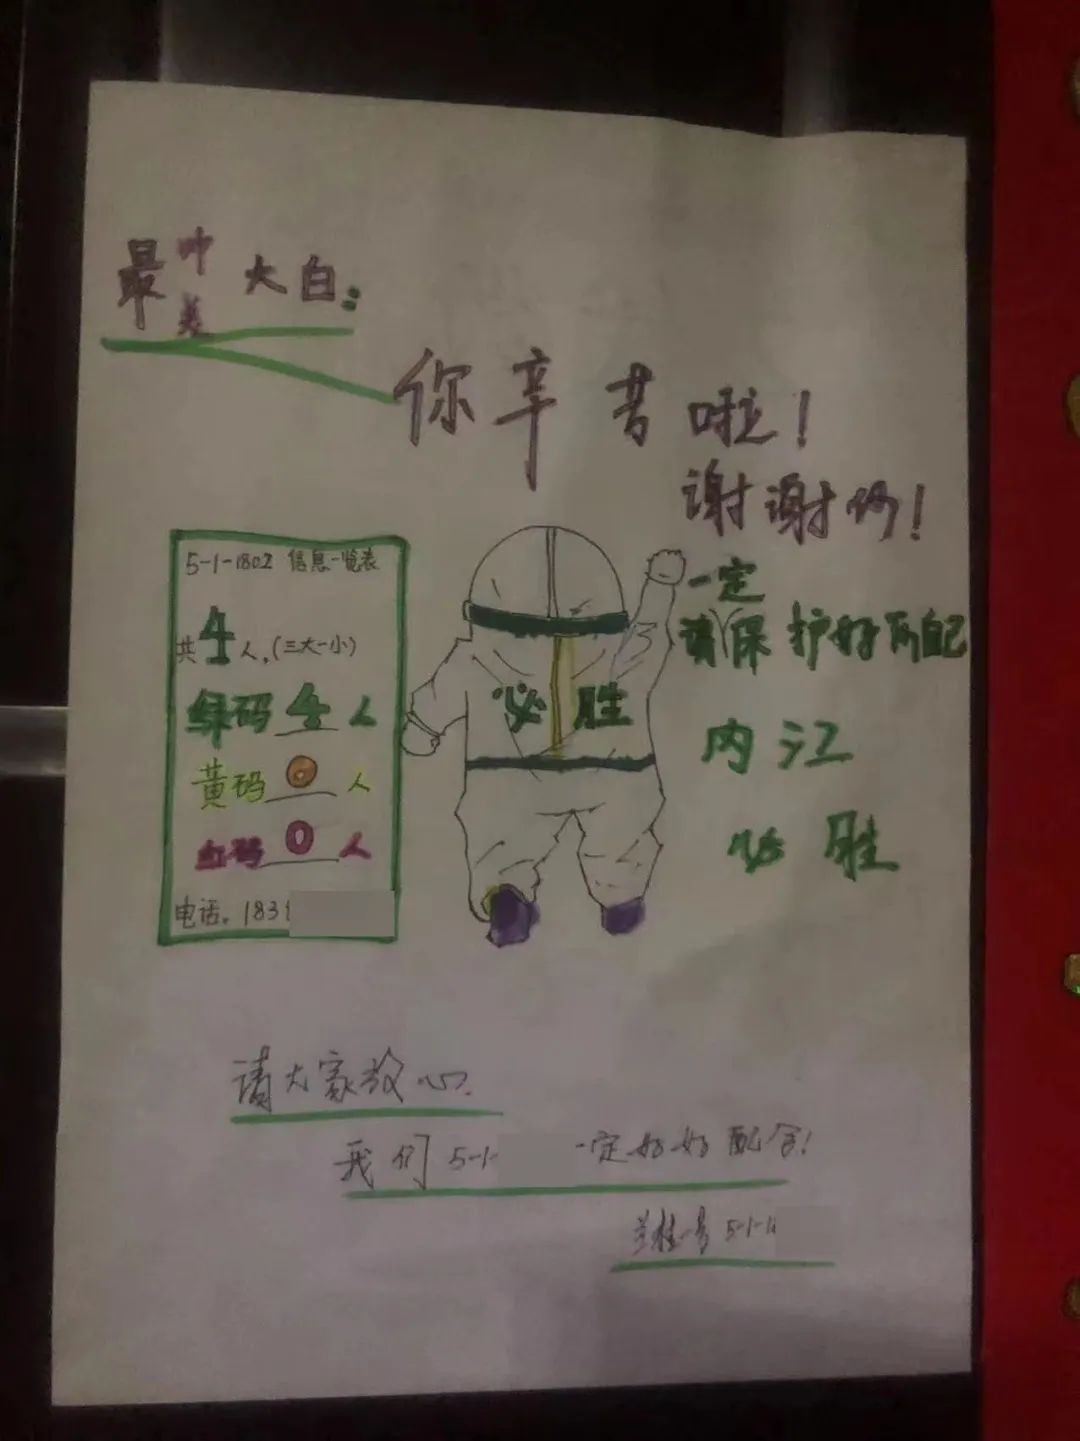 最帅美大白：
你辛苦啦！
谢谢你！
一定
请保护好自己
内江
必胜
必胜
5-1-1802 信息一览表
共4人,(三大一小)
绿码 4 人
黄码 0 人
红码 0 人
电话. 1831
请大家放心.
我们 5-1- 一定好好配合!
5-1-1